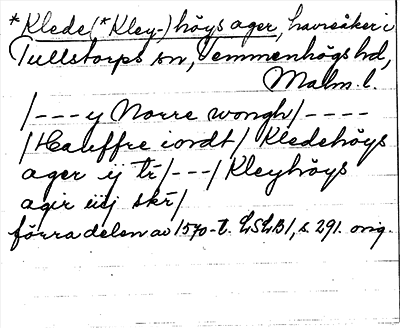 *Klede(*Kley-)höys ager, havreåker i
Tullstorps sn, Vemmenhögs hd,
Malm. l.
/---y Norre wongh/----
/Hauffre iordt/ Kledehöys
ager ij tr/---/Kleyhöys
agir iiij skr/
förra delen av 1570-t. LSLB1, s. 291. orig.